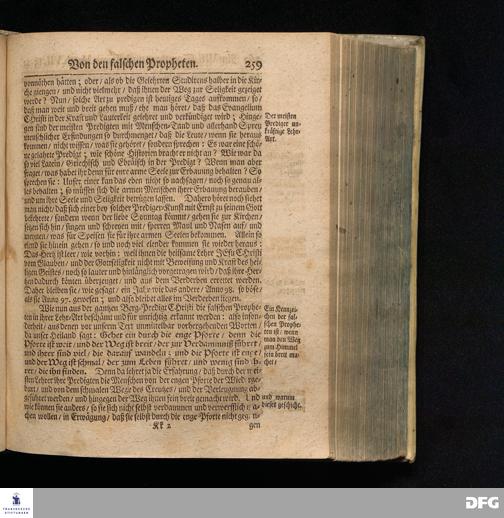 Von den falschen Propheten. 259
vonnöthen hätten; oder/ als ob die Gelehrten Studirens halber in die Kir-
che giengen/ und nicht vielmehr/ daß ihnen der Weg zur Seligkeit gezeiget
werde? Nun/ solche Art zu predigen ist heutiges Tages aufkommen/ so/
daß man weit und breit gehen muß/ ehe man höret/ daß das Evangelium
Christi in der Krafft und Lauterkeit gelehret und verkündiget wird; Hinge-
gen sind der meisten Predigten mit Menschen-Tand und allerhand Spreu
menschlicher Erfindungen so durchmenget/ daß die Leute/ wenn sie heraus
kommen/ nicht wissen/ was sie gehöret/ sondern sprechen: Es war eine schö-
ne gelahrte Predigt; wie schöne Historien bracht er nicht an? Wie war da
so viel Latein/ Griechisch und Ebräisch in der Predigt? Wenn man aber
fraget/ was habet ihr denn für eure arme Seele zur Erbauung behalten? So
sprechen sie: Unser einer kan das eben nicht so nachsagen/ noch so genau al-
les behalten; so müssen sich die armen Menschen ihrer Erbauung berauben/
und um ihre Seele und Seligkeit betrügen lassen. Dahero höret noch siehet
man nicht/ daß sich einer bey solcher Prediger-Kunst mit Ernst zu seinem Gott
bekehrete/ sondern wenn der liebe Sonntag kömmt/ gehen sie zur Kirchen/
setzen sich hin/ singen und schreyen mit/ sperren Maul und Nasen auf/ und
was für Speisen sie für ihre armen Seelen bekommen. Allein so
elend sie hinein gehen/ so und noch viel elender kommen sie wieder heraus:
Das Hertz ist leer/ wie vorhin; weil ihnen die heilsame Lehre JEsu Christi
vom Glauben/ und der Gottseligkeit nicht mit Beweisung und Krafft des hei-
ligen Geistes/ noch so lauter und hinlänglich vorgetragen wird/ daß ihre Her-
tzen dadurch könten überzeuget/ und aus dem Verderben errettet werden.
Daher bleiben sie/ wie gesagt/ ein Jahr wie das andere/ Anno 98. so böse/
als sie Anno 97. gewesen; und also bleibet alles im Verderben liegen.
Wie nun aus der gantzen Berg-Predigt Christi die falschen Prophe-
ten in ihrer Lehr-Art beschämt und für unrichtig erkannt werden: also inson-
derheit/ aus denen vor unsern Text unmittelbar vorhergehenden Worten/
da unser Heiland sagt: Gehet ein durch die enge Pforte, denn die
Pforte ist weit/ und der Weg ist breit/ der zur Verdammniß führet/
und ihrer sind viel/ die darauf wandeln: und die Pforte ist enge/
und der Weg ist schmal/ der zum Leben führet/ und wenig sind ih-
rer/ die ihn finden. Denn da lehret ja die Erfahrung/ daß durch der mei-
sten Lehrer ihre Predigten die Menschen von der engen Pforte der Wiederge-
burt/ und von dem schmalen Wege des Creutzes/ und der Verleugnung ab-
geführet werden/ und hingegen der Weg ihnen fein breit gemacht wird. Und
wie können sie anders/ so sie sich nicht selbst verdammen und verwerfflich ma-
chen wollen/ in Erwägung/ daß sie selbst durch die enge Pforte nicht gegan-
Kk 2 gen
Der meisten
Prediger un-
kräfftige Lehr-
Art.
Ein Kennzei-
chen der fal-
schen Prophe-
ten ist/ wenn
man den Weg
zum Himmel
fein breit ma-
chet/
und warum
dieses geschicht.
FRANCKESCHE
STIFTUNGEN
DFG